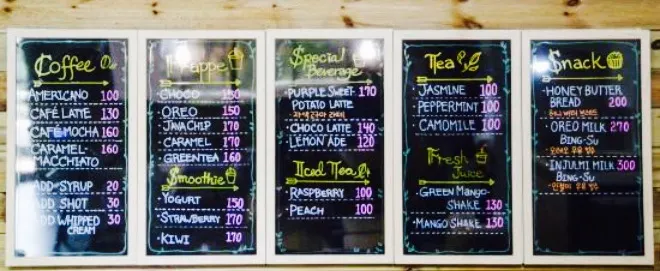 Coffee
AMERICANO 100
CAFÉ LATTE 130
CAFÉ MOCHA 160
CARAMEL 160
MACCHIATO
ADD-SYRUP 20
ADD SHOT 30
ADD WHIPPED 30
CREAM
Frappe
CHOCO 150
OREO 150
JAVA CHIP 170
CARAMEL 170
GREENTEA 160
Smoothie
YOGURT 150
STRAWBERRY 170
KIWI 170
Special
Beverage
PURPLE SWEET 170
POTATO LATTE
자색고구마 라떼
CHOCO LATTE 140
LEMON ADE 120
Iced Tea
RASPBERRY 100
PEACH 100
Tea
JASMINE 100
PEPPERMINT 100
CAMOMILE 100
Fresh
Juice
GREEN MANGO
SHAKE 130
MANGO SHAKE 130
Snack
HONEY BUTTER
BREAD 200
허니 버터 브레드
OREO MILK 270
BING-SU
오레오 우유 빙수
INJULMI MILK 300
BING-SU
인절미 우유 빙수